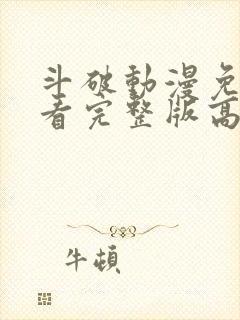 斗破動漫免
看完整版高
牛頓